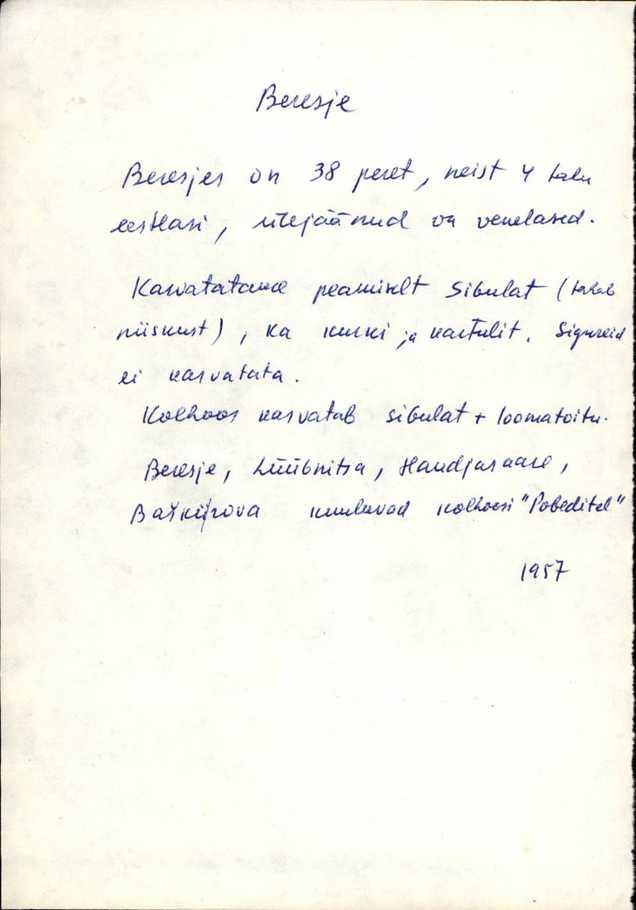 Beresje
Beresjes on 38 peret, neist 4 talu
eestlasi, ülejäänud on venelased.
Kasvatatakse peamiselt sibulat (tahab
niiskust), ka kurki ja kartulit. Sigureid
ei kasvatata.
Kolhoos kasvatab sibulat + loomatoitu.
Beresje, Lüübnitsa, Haudjasaare,
Baškirova kuuluvad kolhoosi "Pobeditel"
1957